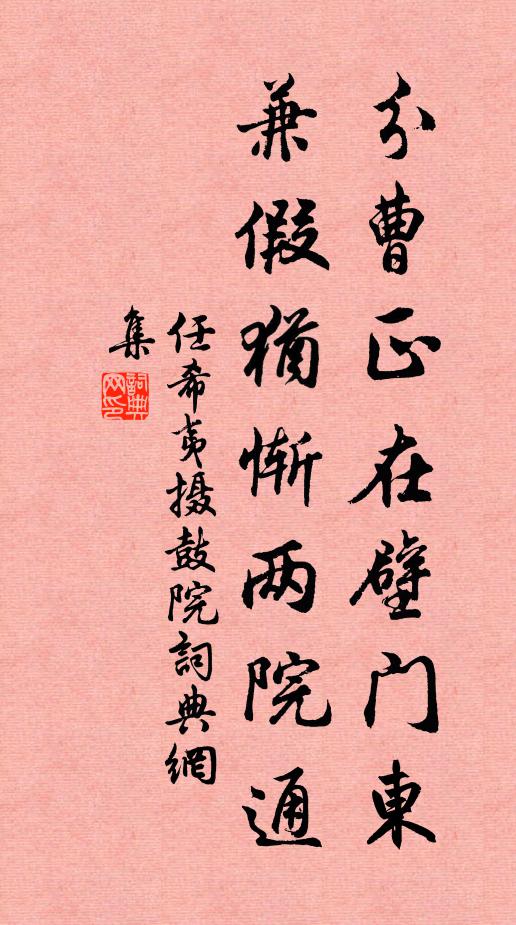 分曹正在壁门東
兼假猶惭两院通
任希夷摄鼓院詞典網
集
詞典网印